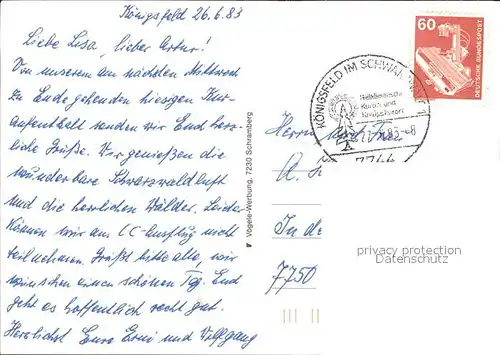 Königsfeld 26.6.83
Liebe Lisa, lieber Artur!
Von unserem am nächsten Mittwoch
zu Ende gehenden hiesigen Kur-
aufenthalt senden wir Euch herz-
liche Grüße. Wir genießen die
wunderbare Schwarzwaldluft
und die herrlichen Wälder. Leider
können wir am CC-Ausflug nicht
teilnehmen. Grüßt bitte alle, wir
wünschen einen schönen Tag. Euch
geht es hoffentlich recht gut.
Herzlichst Eure Erni und Wolfgang
Vögele-Werbung, 7230 Schramberg
60
DEUTSCHE BUNDESPOST
KÖNIGSFELD IM SCHWARZWALD
Heilklimatischer
Kurort und
Kneippkurort
7744
A.
In de
7750
privacy protection
Datenschutz